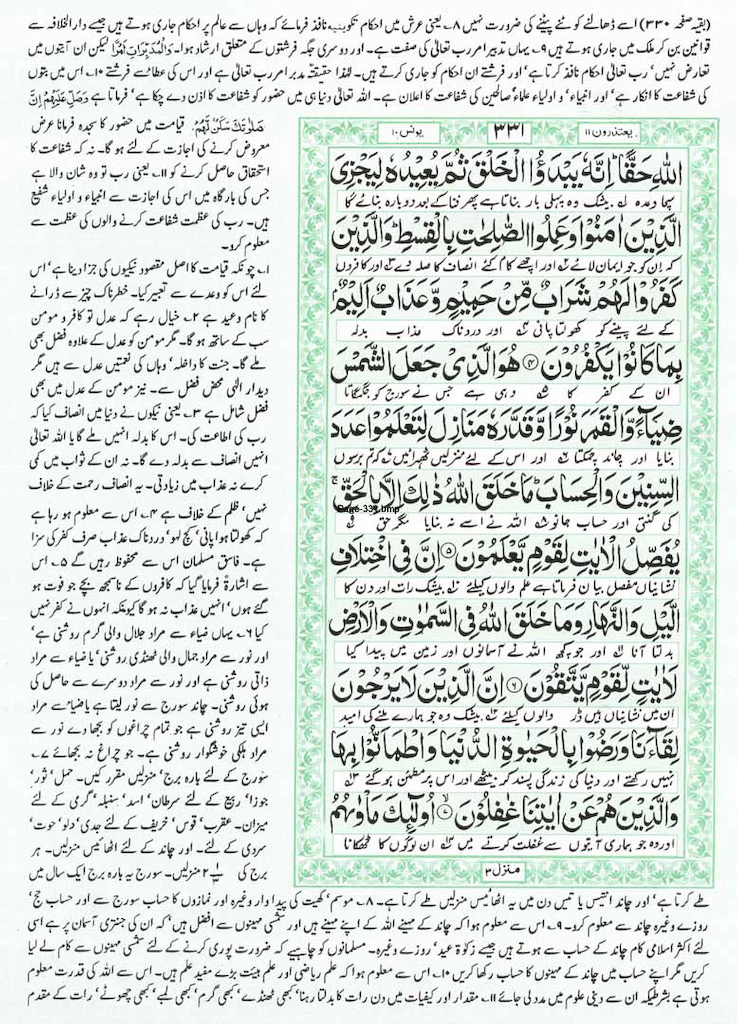 (بقیہ صفحہ ۳۳۰) اسے ڈھالنے کو نئے پینے کی ضرورت نہیں ۸۔ یعنی عرش میں احکام تکوینیہ نافذ فرمائے کہ وہاں سے عالم پر احکام جاری ہوتے ہیں جیسے دار الخلافہ سے
قوانین بن کر ملک میں جاری ہوتے ہیں ۹۔ یہاں تدبیر امر رب تعالیٰ کی صفت ہے۔ اور دوسری جگہ فرشتوں کے متعلق ارشاد ہوا۔ وَالْمُدَبِّرَاتِ اَمْرًا لیکن ان آیتوں میں
تعارض نہیں' رب تعالیٰ احکام نافذ کرتا ہے' اور فرشتے ان احکام کو جاری کرتے ہیں۔ لہٰذا حقیقتہً مدبر امر رب تعالیٰ ہی ہے اور اس کی عطا سے فرشتے ۱۰۔ اس میں بتوں
کی شفاعت کا انکار ہے' اور انبیاء' و اولیاء علماء' صالحین کی شفاعت کا اعلان ہے۔ اللہ تعالیٰ دنیا ہی میں حضور کو شفاعت کا اذن دے چکا ہے' فرماتا ہے وَصَلِّ عَلَیْهِمْ اِنَّ
صَلٰوتَكَ سَكَنٌ لَّهُمْ۔ قیامت میں حضور کا سجدہ فرمانا عرض
معروض کرنے کی اجازت کے لئے ہو گا۔ نہ کہ شفاعت کا
استحقاق حاصل کرنے کو ۱۱۔ یعنی رب تو وہ شان والا ہے
جس کی بارگاہ میں اس کی اجازت سے انبیاء و اولیاء شفیع
ہیں۔ رب کی عظمت شفاعت کرنے والوں کی عظمت سے
معلوم کرو۔
۱۔ چونکہ قیامت کا اصل مقصود نیکیوں کی جزا دینا ہے' اس
لئے اس کو وعدے سے تعبیر کیا۔ خطرناک چیز سے ڈرانے
کا نام وعید ہے ۲۔ خیال رہے کہ عدل تو کافر و مومن
سب کے ساتھ ہو گا۔ مگر مومن کو عدل کے علاوہ فضل بھی
ملے گا۔ جنت کا داخلہ' وہاں کی نعمتیں عدل سے ہیں مگر
دیدار الٰہی محض فضل سے۔ نیز مومن کے عدل میں بھی
فضل شامل ہے ۳۔ یعنی نیکوں نے دنیا میں انصاف کیا کہ
رب کی اطاعت کی۔ اس کا بدلہ انہیں ملے گا یا اللہ تعالیٰ
انہیں انصاف سے بدلہ دے گا۔ نہ ان کے ثواب میں کمی
کرے نہ عذاب میں زیادتی۔ یہ انصاف رحمت کے خلاف
نہیں' ظلم کے خلاف ہے ۴۔ اس سے معلوم ہو رہا ہے
کہ کھولتا ہوا پانی' کچ لہو' دردناک عذاب صرف کفر کی سزا
ہے۔ فاسق مسلمان اس سے محفوظ رہیں گے ۵۔ اس
سے اشارۃً فرمایا گیا کہ کافروں کے ناسمجھ بچے جو فوت ہو
گئے ہوں' انہیں عذاب نہ ہو گا کیونکہ انہوں نے کفر نہیں
کیا ۶۔ یہاں ضیاء سے مراد جلال والی گرم روشنی ہے'
اور نور سے مراد جمال والی ٹھنڈی روشنی' یا ضیاء سے مراد
ذاتی روشنی ہے اور نور سے مراد دوسرے سے حاصل کی
ہوئی روشنی۔ چاند سورج سے نور لیتا ہے یا ضیاء سے مراد
ایسی تیز روشنی ہے جو تمام چراغوں کو بجھا دے نور سے
مراد ہلکی خوشگوار روشنی ہے۔ جو چراغ نہ بجھائے ۷۔
سورج کے لئے بارہ برج' منزلیں مقرر کیں۔ حمل' ثور'
جوزا' ربیع کے لئے سرطان' اسد' سنبلہ' گرمی کے لئے
میزان۔ عقرب' قوس' خریف کے لئے جدی' دلو' حوت'
سردی کے لئے۔ اور چاند کے لئے اٹھائیس منزلیں۔ ہر
برج کی ۲ منزلیں۔ سورج یہ بارہ برج ایک سال میں
یعتذرون ۱۱
۳۳۱
یونس ۱۰
اللهِ حَقًّا اِنَّهٗ یَبْدَؤُا الْخَلْقَ ثُمَّ یُعِیْدُهٗ لِیَجْزِیَ
سچا وعدہ بیشک وہ پہلی بار بناتا ہے پھر فنا کے بعد دوبارہ بنائے گا
الَّذِیْنَ اٰمَنُوْا وَعَمِلُوا الصّٰلِحٰتِ بِالْقِسْطِ وَالَّذِیْنَ
کہ ان کو جو ایمان لائے اور اچھے کام کئے انصاف کا صلہ دے اور کافروں
كَفَرُوْا لَهُمْ شَرَابٌ مِّنْ حَمِیْمٍ وَّعَذَابٌ اَلِیْمٌ
کے لئے پینے کو کھولتا پانی اور دردناک عذاب بدلہ
بِمَا كَانُوْا یَكْفُرُوْنَ ۴ هُوَ الَّذِیْ جَعَلَ الشَّمْسَ
ان کے کفر کا وہی ہے جس نے سورج کو جگمگاتا
ضِیَآءً وَّالْقَمَرَ نُوْرًا وَّقَدَّرَهٗ مَنَازِلَ لِتَعْلَمُوْا عَدَدَ
بنایا اور چاند چمکتا اور اس کے لئے منزلیں ٹھہرائیں کہ تم برسوں
السِّنِیْنَ وَالْحِسَابَ مَا خَلَقَ اللهُ ذٰلِكَ اِلَّا بِالْحَقِّ
کی گنتی اور حساب جانو اللہ نے اسے نہ بنایا مگر حق
Page-331.bmp
یُفَصِّلُ الْاٰیٰتِ لِقَوْمٍ یَّعْلَمُوْنَ ۵ اِنَّ فِی اخْتِلَافِ
نشانیاں مفصل بیان فرماتا ہے علم والوں کیلئے بیشک رات اور دن کا
الَّیْلِ وَالنَّهَارِ وَمَا خَلَقَ اللهُ فِی السَّمٰوٰتِ وَالْاَرْضِ
بدلتا آنا اور جو کچھ اللہ نے آسمانوں اور زمین میں پیدا کیا
لَاٰیٰتٍ لِّقَوْمٍ یَّتَّقُوْنَ ۶ اِنَّ الَّذِیْنَ لَا یَرْجُوْنَ
ان میں نشانیاں ہیں ڈر والوں کیلئے بیشک وہ جو ہمارے ملنے کی امید
لِقَآءَنَا وَرَضُوْا بِالْحَیٰوةِ الدُّنْیَا وَاطْمَاَنُّوْا بِهَا
نہیں رکھتے اور دنیا کی زندگی پسند کر بیٹھے اور اس پر مطمئن ہو گئے
وَالَّذِیْنَ هُمْ عَنْ اٰیٰتِنَا غٰفِلُوْنَ ۷ اُولٰٓئِكَ مَاْوٰىهُمُ
اور وہ جو ہماری آیتوں سے غفلت کرتے ہیں ان لوگوں کا ٹھکانا
منزل ۳
طے کرتا ہے' اور چاند انتیس یا تیس دن میں یہ اٹھائیس منزلیں طے کرتا ہے۔ ۸۔ موسم' کھیت کی پیداوار وغیرہ اور نمازوں کا حساب سورج سے اور حساب حج'
روزے وغیرہ چاند سے معلوم کرو۔ ۹۔ اس سے معلوم ہوا کہ چاند کے مہینے اللہ کے اپنے مہینے ہیں اور شمسی مہینوں سے افضل ہیں' کہ ان کی جنتری آسمان پر ہے اسی
لئے اکثر اسلامی کام چاند کے حساب سے ہوتے ہیں جیسے زکوٰۃ' عید' روزے وغیرہ۔ مسلمانوں کو چاہیے کہ ضرورت پوری کرنے کے لئے شمسی مہینوں سے کام لے لیا
کریں مگر اپنے حساب میں چاند کے مہینوں کا حساب رکھا کریں ۱۰۔ اس سے معلوم ہوا کہ علم ریاضی اور علم ہیئت بڑے مفید علم ہیں۔ اس سے اللہ کی قدرت معلوم
ہوتی ہے بشرطیکہ ان سے دینی علوم میں مدد لی جائے ۱۱۔ مقدار اور کیفیات میں دن رات کا بدلتا رہنا' کبھی ٹھنڈے' کبھی گرم' کبھی لمبے' کبھی چھوٹے' رات کے مقدم